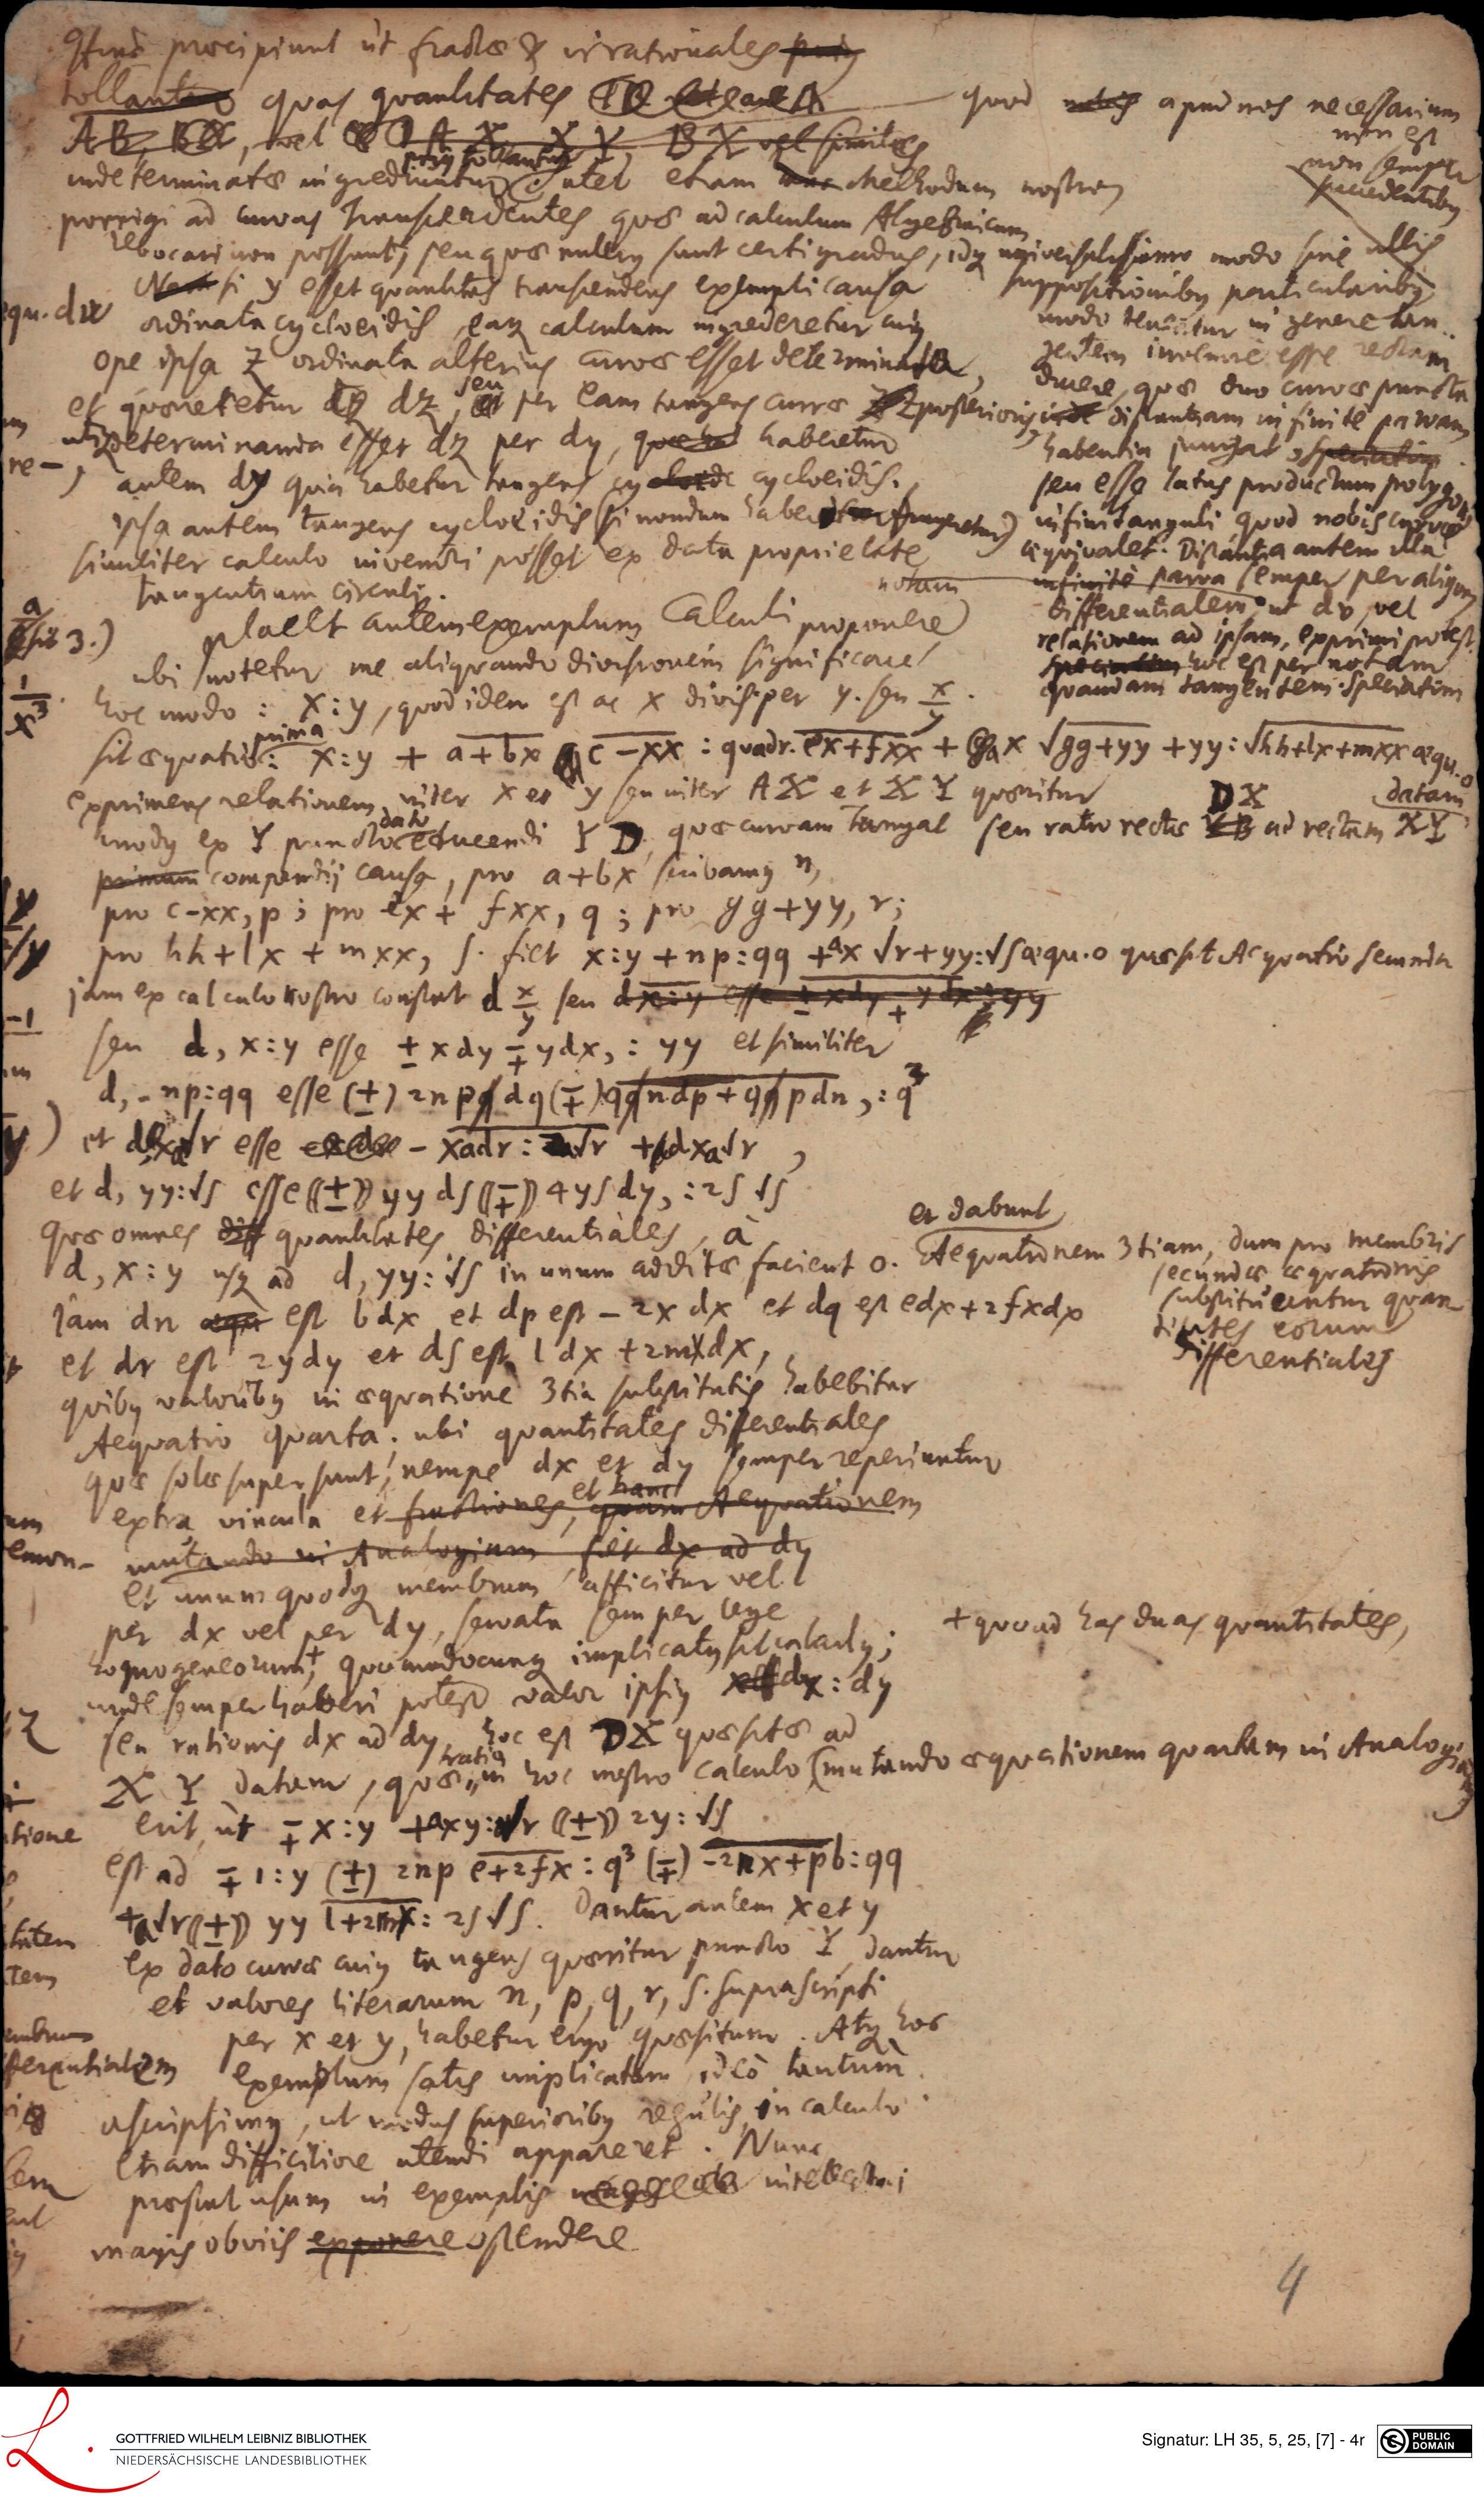 præcipiunt ut fractæ & irrationales
tollantur quas quantitates
AB, vel XY, BX vel similes
prius tollantur
indeterminatæ ingrediuntur patet etiam Methodum nostram
porrigi ad curvas Transcendentes quæ ad calculum Algebraicum
revocari non possunt, seu quæ nullius sunt certi gradus, idq universalissimo modo sine ullis
si y esset quantitas transcendens exempli causa
ordinata cycloeidis, eaq calculum ingrederetur cujus
ope ipsa z ordinata alterius curvæ esset determinata,
et quæreretur dz, seu per eam tangens curvæ posterioris
utiq determinanda esset dz per dy, haberetur
autem dy quia habetur tangens cycloeidis.
ipsa autem tangens cycloeidis si nondum haberi fingeretur)
similiter calculo inveniri posset ex data proprietate
tangentium circuli.
quod apud nos necessarium
non est
non semper
succedentibus
suppositionibus particularibus
modo teneatur in genere tan
gentem invenire esse rectam
ducere, quæ duo curvæ puncta
distantiam infinite parvam
habentia jungat,
seu esse latus productum polygoni
infinitanguli quod nobis curvæ
æquivalet. Distantia autem illa
infinite parva semper per aliquam notam
differentialem, ut dv, vel
relationem ad ipsam, exprimi potest.
hoc est per notam
quandam tangentem. Speciatim
Placet autem exemplum Calculi proponere
ubi notetur me aliquando divisionem significare
hoc modo: x:y, quod idem est ac x divis. per y. seu x/y.
sit æquatio prima: x:y + a+bx c-xx : quadr. ex+fxx + ax √gg+yy + yy:√hh+lx+mxx æqu. 0
exprimens relationem inter x et y seu inter AX et XY quæritur
modus ex Y puncto dato educendi YD, quæ curvam tangat seu ratio rectæ DX ad rectam datam XY
primum compendii causa, pro a+bx scribamus n,
pro c-xx, p; pro ex+fxx, q; pro gg+yy, r;
pro hh+lx+mxx, s. fiet x:y+np:qq +ax√r+yy:√s æqu. 0 quæ sit Aequatio secunda
jam ex calculo nostro constat d x/y seu dx:y esse ± xdy ∓ ydx : yy
seu d, x:y esse ± xdy ∓ ydx, : yy et similiter
d, np:qq esse (±) 2npdq (∓) q ndp + q pdn, : q3
et d, ax√r esse - xadr : √r + dxa√r,
et d, yy:√s esse ((±)) yyds ((∓)) 4ysdy, : 2s√s
quæ omnes quantitates differentiales, à
d, x:y usq ad d, yy:√s in unum additæ facient 0. et dabunt Aequationem 3tiam, dum pro membris
secundæ æquationis
substituuntur quan
titates eorum
differentiales
Jam dn est bdx et dp est -2xdx et dq est edx+2fxdx
et dr est 2ydy et ds est ldx+2mxdx,
quibus valoribus in æquatione 3tia substitutis habebitur
Aequatio quarta. ubi quantitates differentiales
quæ solæ supersunt, nempe dx et dy semper reperiuntur
extra vincula et fractiones, et hanc Aequationem
mutando in Analogiam fiet dx ad dy
et unumquodq membrum afficitur vel
per dx vel per dy, servata semper lege
homogeneorum+, quomodocunq implicatus sit calculus;
+ quoad has duas quantitates,
unde semper haberi potest valor ipsius dx:dy
seu rationis dx ad dy hoc est DX quæsitæ ad
XY datam, quæ ratio in hoc nostro calculo (mutando æquationem quartam in Analogiam)
erit, ut ∓ x:y + axy:√r ((±)) 2y:√s
est ad ∓ 1:y (±) 2np e+2fx : q3 (∓) -2nx+pb:qq
+a√r ((±)) yy l+2mx : 2s√s. Dantur autem x et y
ex dato curvæ cujus tangens quæritur puncto Y, dantur
et valores literarum n, p, q, r, s. suprascripti
per x et y, habetur ergo quæsitum. Atq hoc
exemplum satis implicatum ideo tantum
ascripsimus, ut modus superioribus regulis in calculo
etiam difficiliore utendi appareret. Nunc
præstat usum in exemplis intellectui
magis obviis exponere ostendere
4
GOTTFRIED WILHELM LEIBNIZ BIBLIOTHEK
NIEDERSÄCHSISCHE LANDESBIBLIOTHEK
Signatur: LH 35, 5, 25, [7] - 4r
PUBLIC DOMAIN